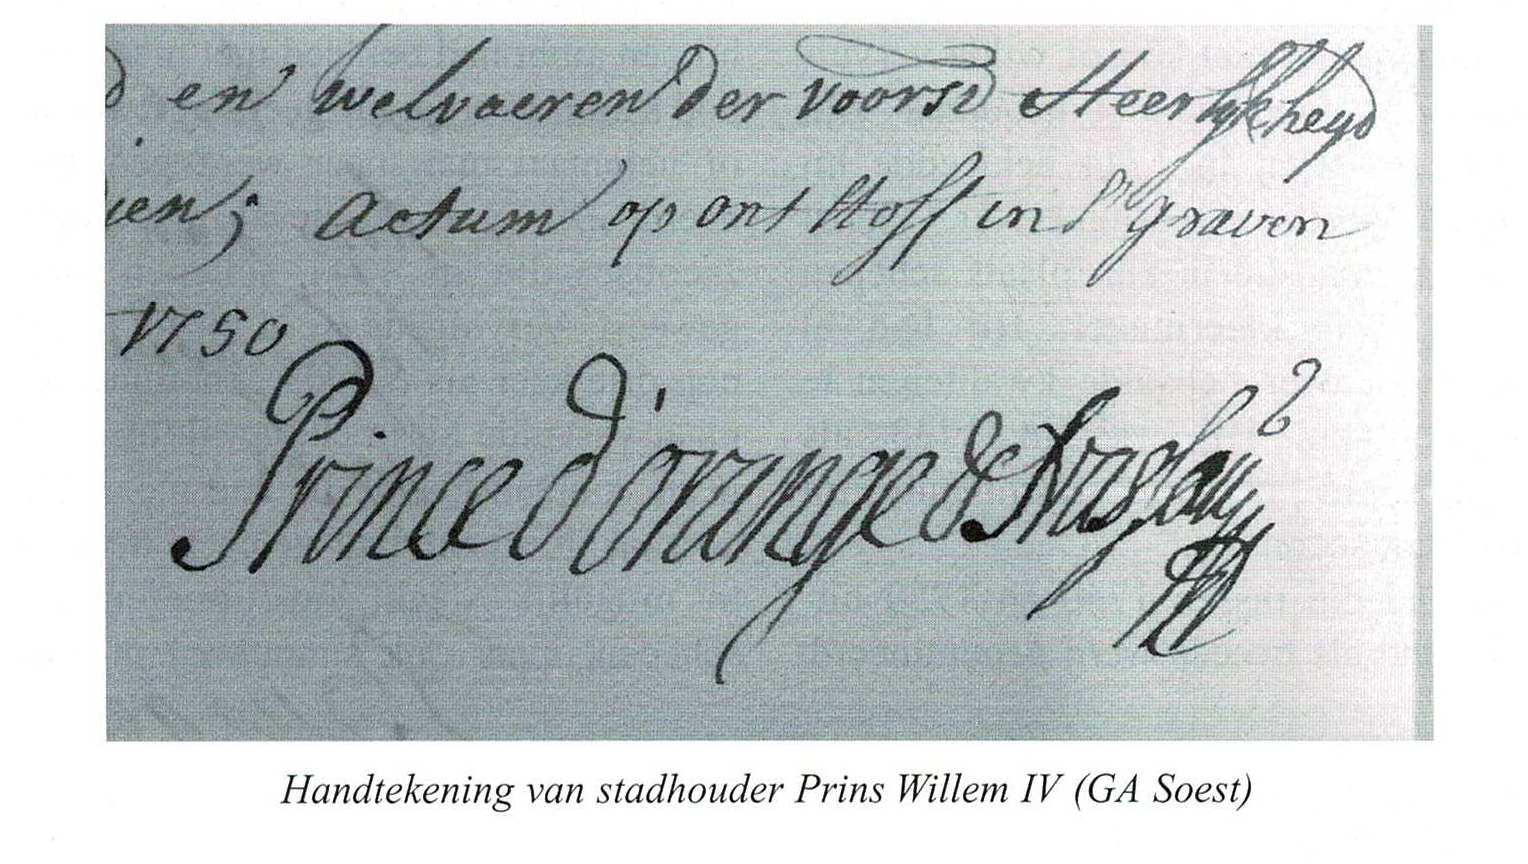 en welvaeren der voorsd Heerlykheyd
ien; Actum op ons Hoff in s'graven
1750
Prince d'orange & Nassau
Handtekening van stadhouder Prins Willem IV (GA Soest)